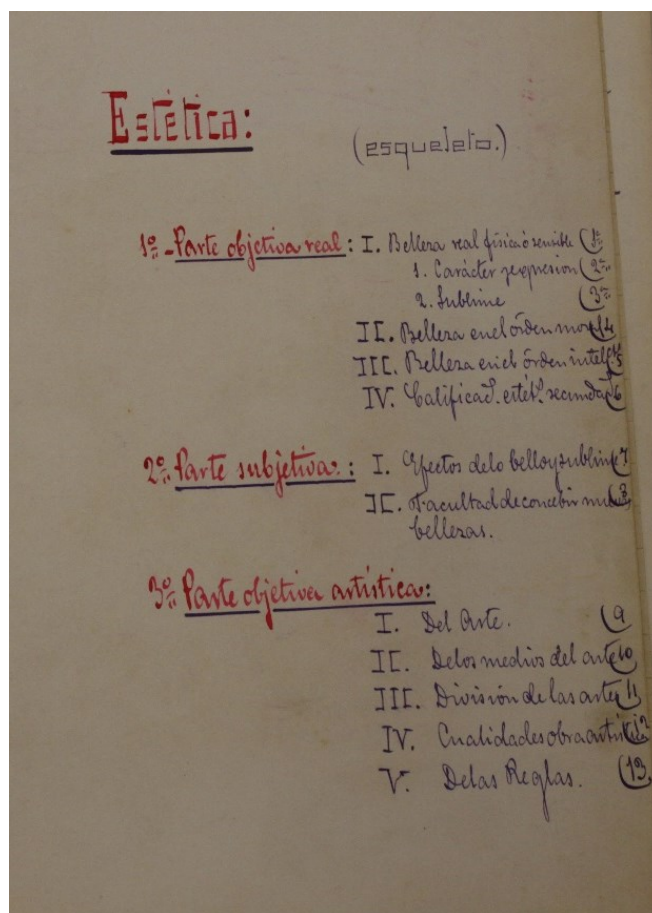 Estética:
(esqueleto.)
1ª - Parte objetiva real: I. Belleza real física ó sensible (1ª
1. Carácter y expresion (2ª
2. Sublime (3ª
II. Belleza en el órden mor (4
III. Belleza en el órden intel. (5
IV. Calificac. estét. secunda (6
2ª Parte subjetiva: I. Efectos de lo bello y sublime 7
II. Facultad de concebir (8
bellezas.
3ª Parte objetiva artística:
I. Del Arte. (9
II. De los medios del arte (10
III. División de las artes (11
IV. Cualidades obra artística (12
V. De las Reglas. (13